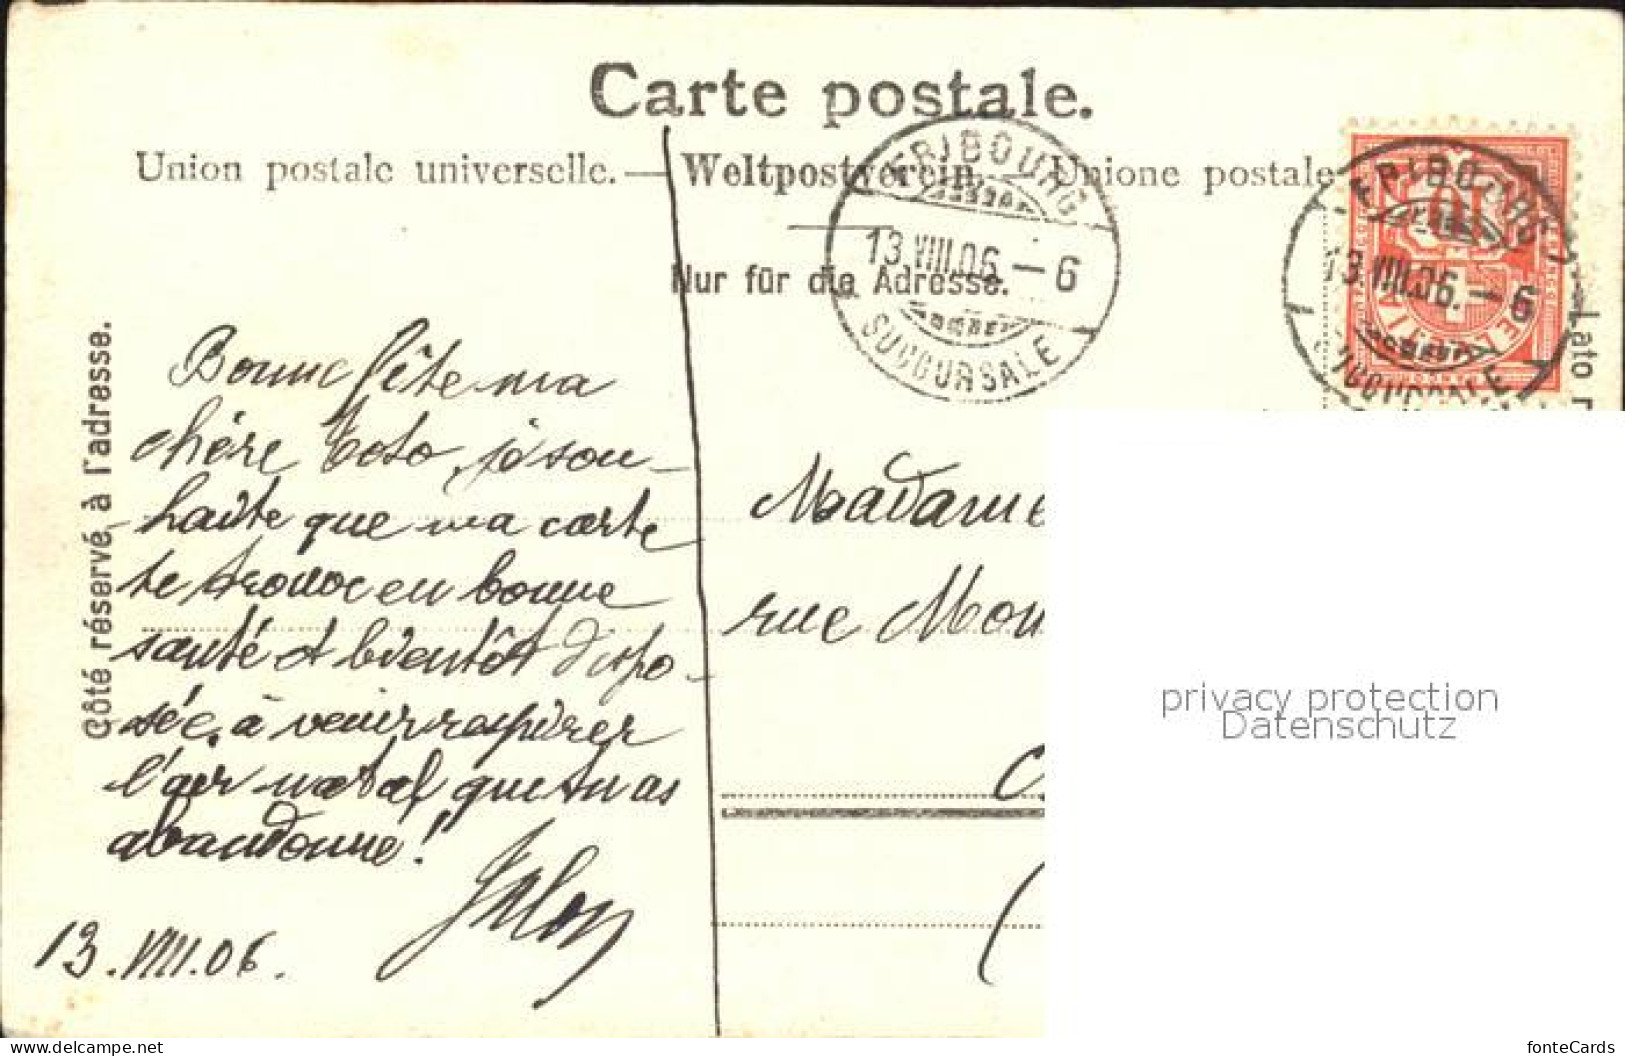 Carte postale.
Union postale universelle. — Weltpostverein. Unione postale
Nur für die Adresse.
Côté réservé à l'adresse.
Lato r
FRIBOURG
13.VIII.06. – 6
SUCCURSALE
FRIBOURG
13.VIII.06. – 6
SUCCURSALE
Bonne fête ma
chère Toto, je sou-
haite que ma carte
te trouve en bonne
santé et bientôt dispo-
sée à venir respirer
l'air natal que tu as
abandonné!
13.VIII.06.
Madame
rue Mon
privacy protection
Datenschutz
www.delcampe.net
fonteCards